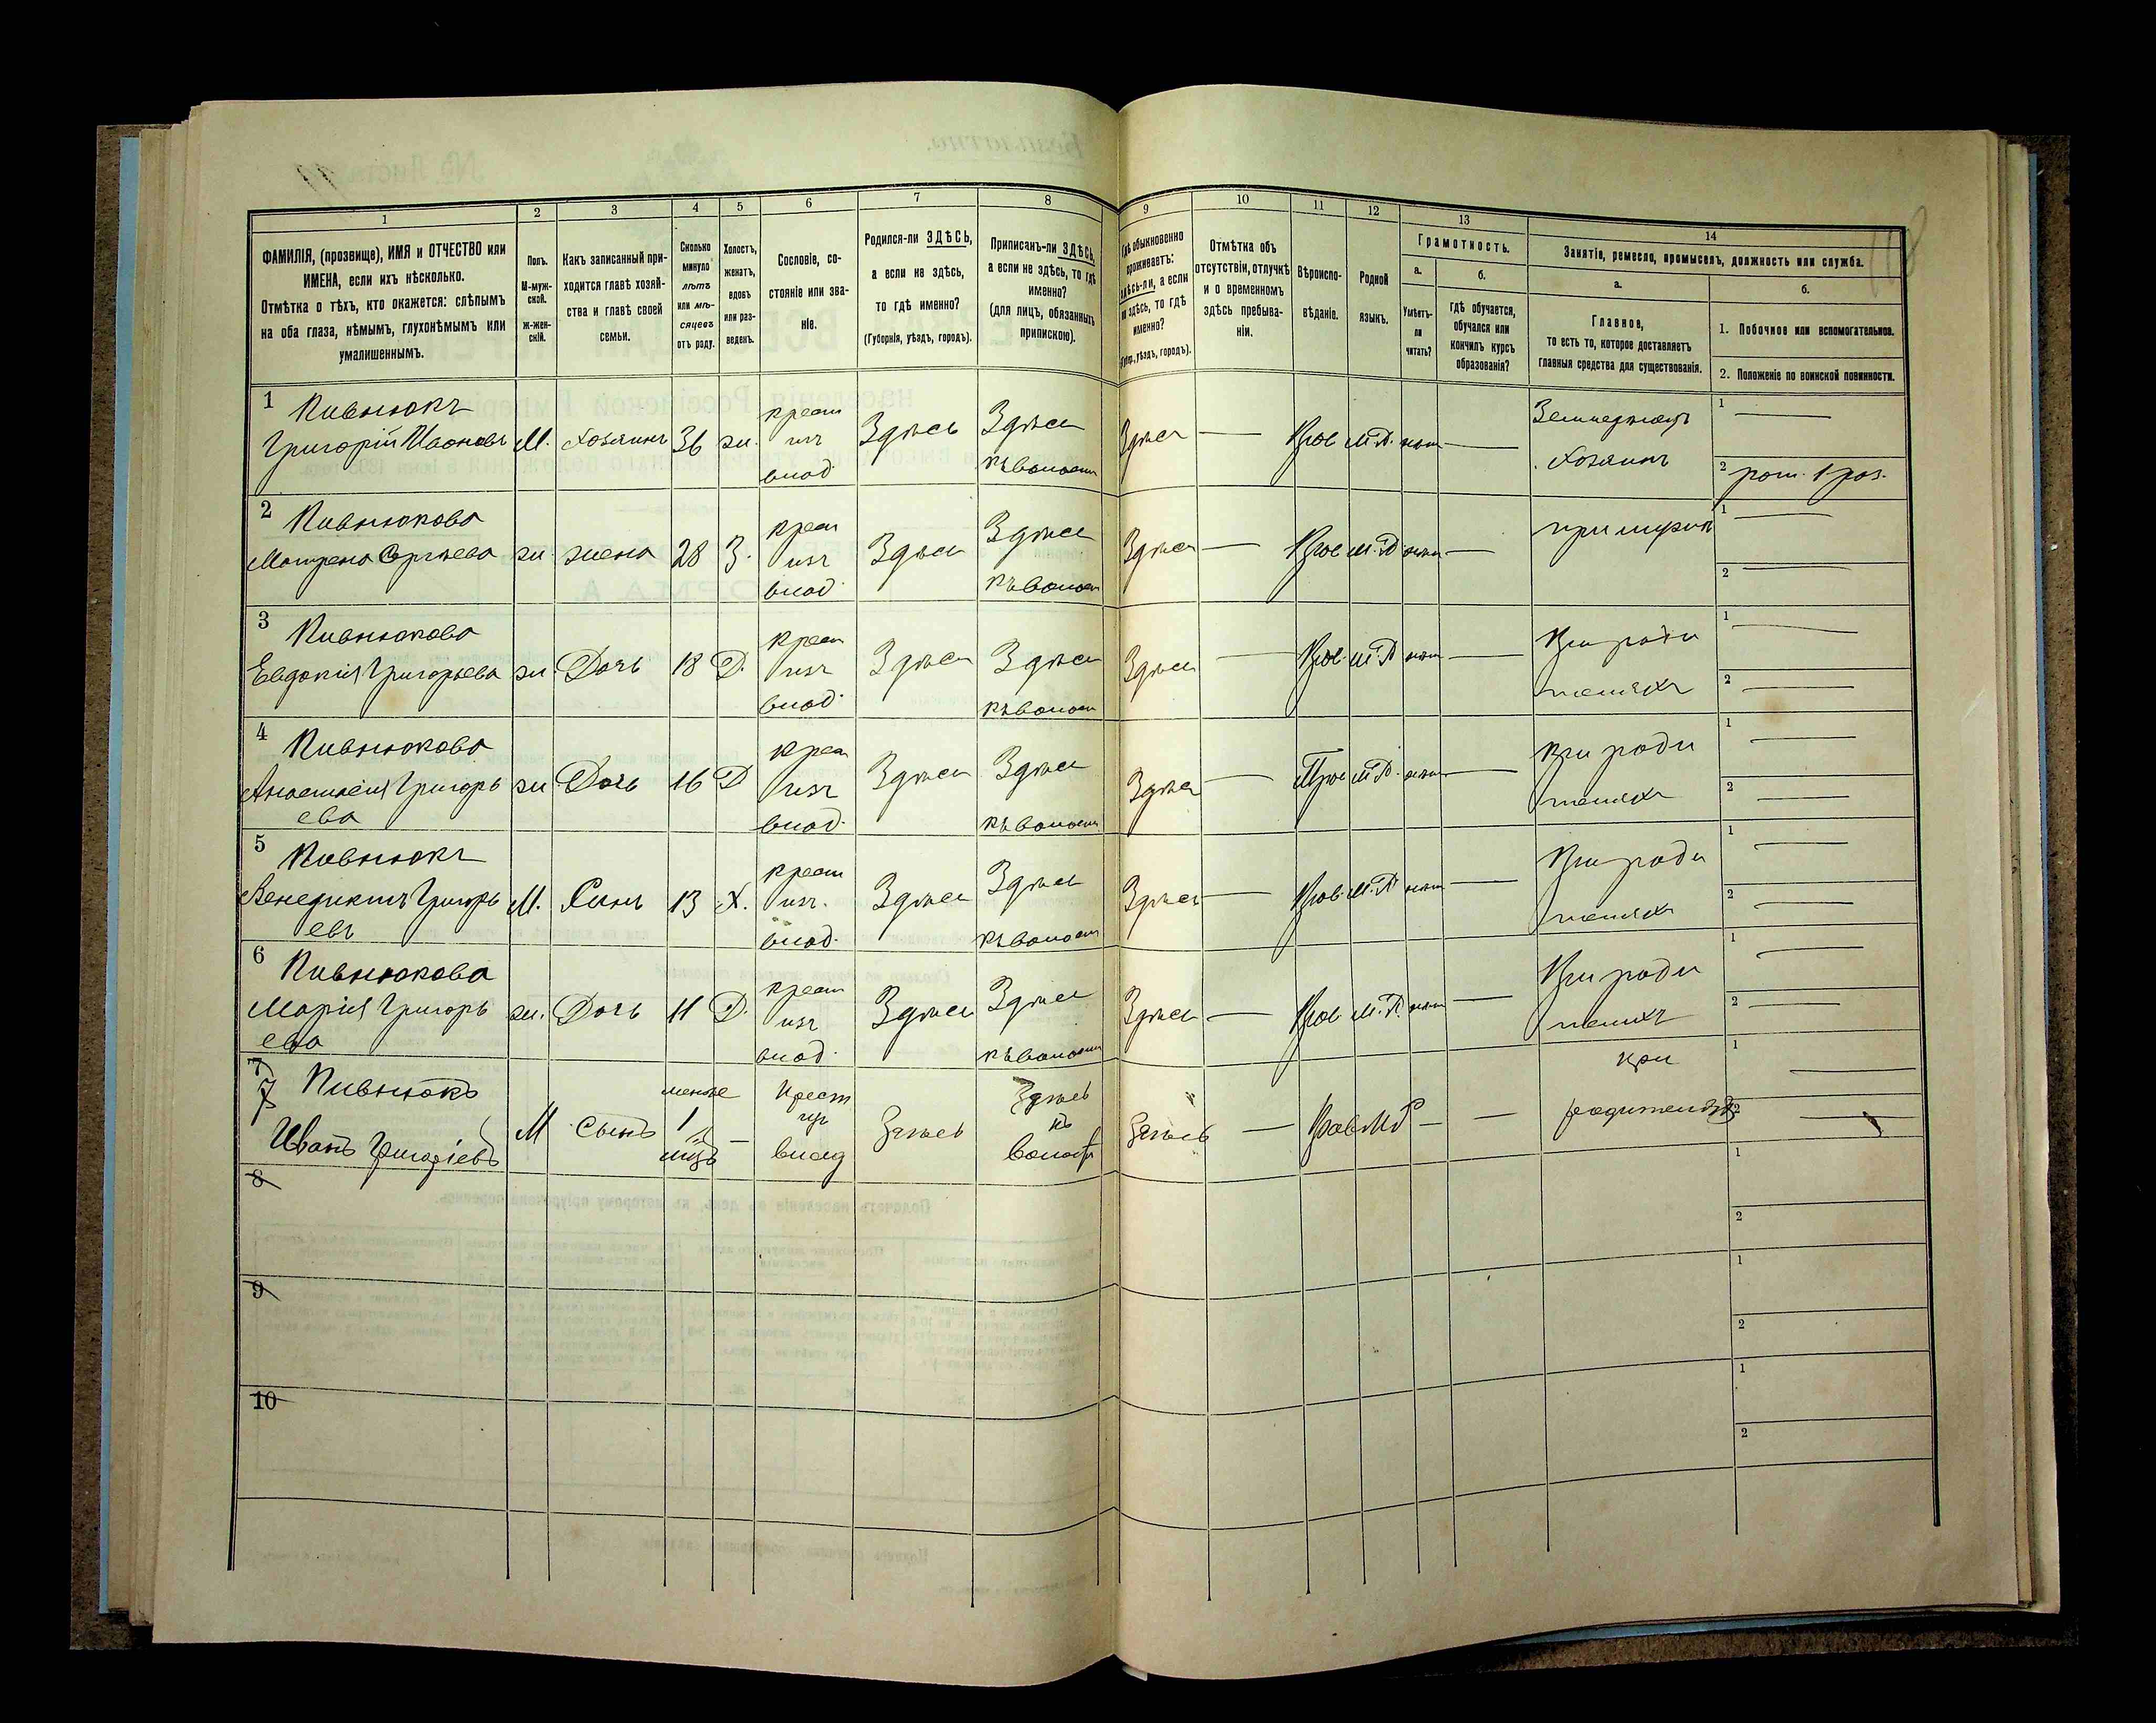 1 2 3 4 5 6 7 8 9 10 11 12 13 14
ФАМИЛІЯ, (прозвище), ИМЯ и ОТЧЕСТВО или
ИМЕНА, если ихъ нѣсколько.
Отмѣтка о тѣхъ, кто окажется: слѣпымъ
на оба глаза, нѣмымъ, глухонѣмымъ или
умалишеннымъ.
Полъ.
М-муж-
ской.
ж-жен-
скій.
Какъ записанный при-
ходится главѣ хозяй-
ства и главѣ своей
семьи.
Сколько
минуло
лѣтъ
или мѣ-
сяцевъ
отъ роду.
Холостъ,
женатъ,
вдовъ
или раз-
веденъ.
Сословіе, со-
стояніе или зва-
ніе.
Родился-ли ЗДѢСЬ,
а если не здѣсь,
то гдѣ именно?
(Губернія, уѣздъ, городъ).
Приписанъ-ли ЗДѢСЬ,
а если не здѣсь, то гдѣ
именно?
(для лицъ, обязанныхъ
припискою).
Гдѣ обыкновенно
проживаетъ:
здѣсь-ли, а если
не здѣсь, то гдѣ
именно?
(Губер., уѣздъ, городъ).
Отмѣтка объ
отсутствіи, отлучкѣ
и о временномъ
здѣсь пребыва-
ніи.
Вѣроиспо-
вѣданіе.
Родной
языкъ.
Грамотность.
а.
Умѣетъ-
ли
читать?
б.
Гдѣ обучается,
обучался или
кончилъ курсъ
образованія?
Занятіе, ремесло, промыселъ, должность или служба.
а.
Главное,
то есть то, которое доставляетъ
главныя средства для существованія.
б.
1. Побочное или вспомогательное.
2. Положеніе по воинской повинности.
1 Пивнюкъ
Григорій Ивановъ М. Хозяинъ 36 ж. крест изъ влад. Здѣсь Здѣсь къ волости Здѣсь — Прав М.Р. нѣт — Земледѣлецъ Хозяинъ
1 —
2 рат. 1 раз.
2 Пивнюкова
Матрена Сергѣева ж. жена 28 З. крест изъ влад. Здѣсь Здѣсь къ волост Здѣсь — Прав М.Р. нѣт — при мужѣ
1 —
2 —
3 Пивнюкова
Евдокія Григорьева ж. Дочь 18 Д. крест изъ влад. Здѣсь Здѣсь къ волост Здѣсь — Прав. М.Р. нѣт — При роди
теляхъ
1 —
2 —
4 Пивнюкова
Анастасія Григорь
ева ж Дочь 16 Д крест изъ влад. Здѣсь Здѣсь къ волости Здѣсь — Прав М.Р. нѣт — При роди
теляхъ
1 —
2 —
5 Пивнюкъ
Венедиктъ Григорь
евъ М. Сынъ 13 Х. крест изъ влад. Здѣсь Здѣсь къ волост Здѣсь — Прав. М.Р. нѣт — При роди
теляхъ
1 —
2 —
6 Пивнюкова
Марія Григорь
ева ж. Дочь 11 Д. крест изъ влад. Здѣсь Здѣсь къ волости Здѣсь — Прав. М.Р. нѣт — При роди
теляхъ
1 —
2 —
7 Пивнюкъ
Иванъ Григоріевъ М Сынъ менѣе 1 — Крест изъ влад Здѣсь Здѣсь къ волост Здѣсь — Прав МР — — при
родителяхъ
1 —
2 —
8
1
2
9
1
2
10
1
2